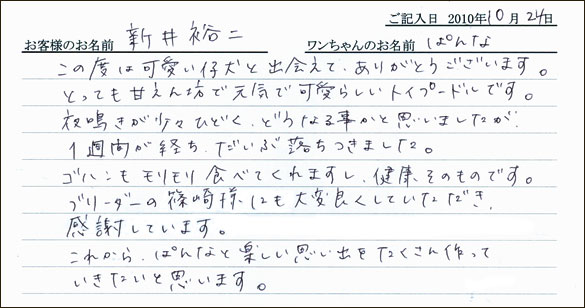 ご記入日 2010年10月24日
お客様のお名前 新井裕二 ワンちゃんのお名前 ぱんな
この度は可愛い仔犬と出会えて、ありがとうございます。
とっても甘えん坊で元気で可愛らしいトイプードルです。
夜鳴きが少々ひどく、どうなる事かと思いましたが、
1週間が経ち、だいぶ落ちつきました。
ゴハンもモリモリ食べてくれますし、健康そのものです。
ブリーダーの篠崎様にも大変良くしていただき、
感謝しています。
これから、ぱんなと楽しい思い出をたくさん作って
いきたいと思います。